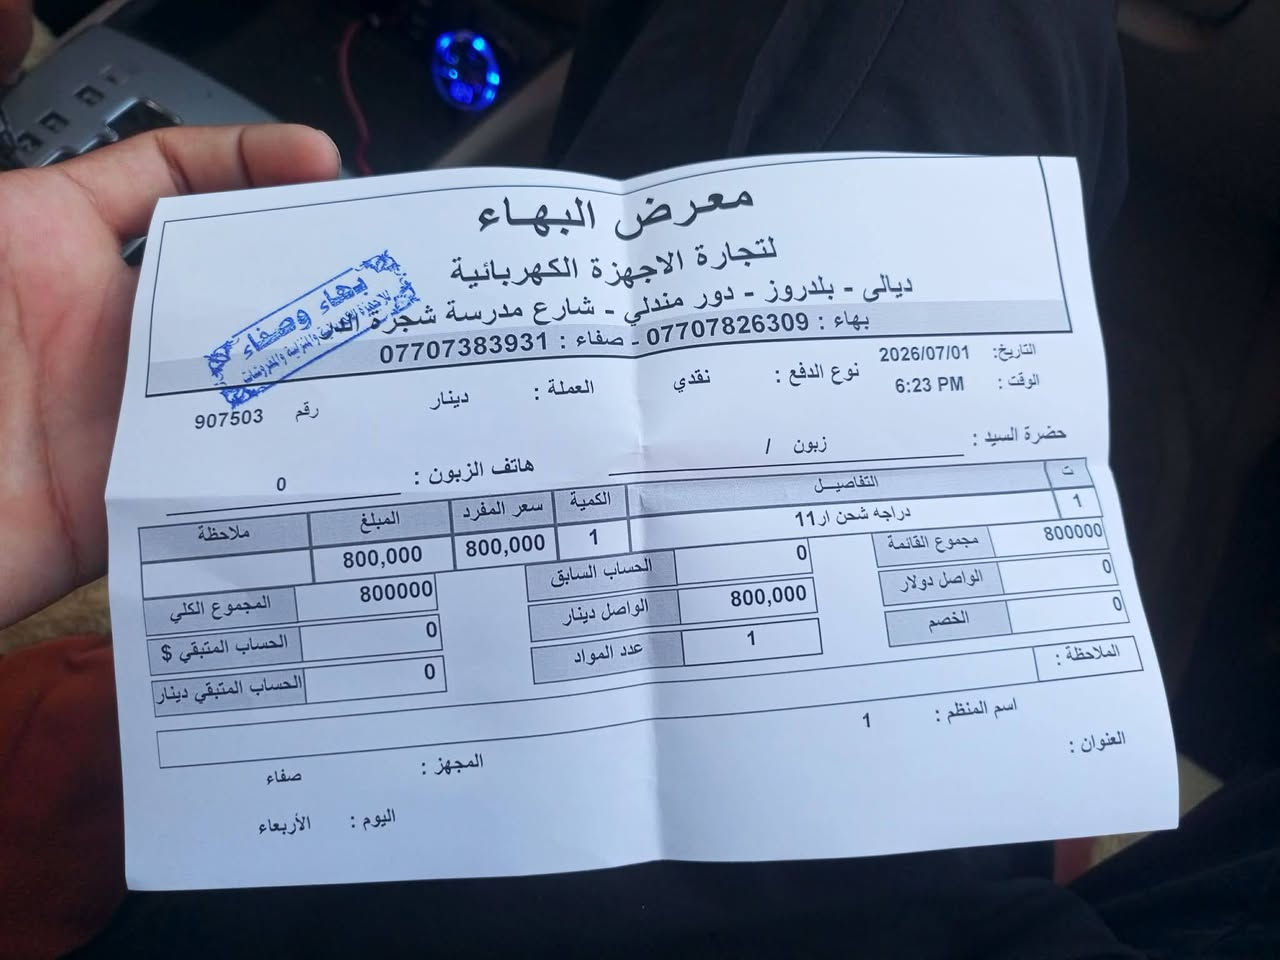 معرض البهاء
لتجارة الاجهزة الكهربائية
ديالى - بلدروز - دور مندلي - شارع مدرسة شجرة الدر
بهاء : 07707826309 - صفاء : 07707383931
بهاء وصفاء
التاريخ: 2026/07/01
الوقت : 6:23 PM
نوع الدفع : نقدي
العملة : دينار
رقم 907503
حضرة السيد : زبون /
هاتف الزبون : 0
ت التفاصيــل الكمية سعر المفرد المبلغ ملاحظة
1 دراجه شحن ار11 1 800,000 800,000
مجموع القائمة 800000
الحساب السابق 0
المجموع الكلي 800000
الواصل دولار 0
الواصل دينار 800,000
الحساب المتبقي $ 0
الخصم 0
عدد المواد 1
الحساب المتبقي دينار 0
الملاحظة :
اسم المنظم : 1
المجهز : صفاء
العنوان :
اليوم : الأربعاء